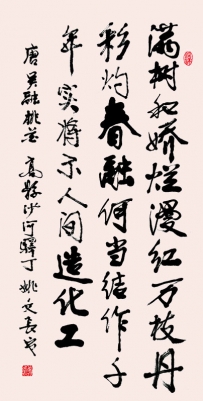 满树和娇烂漫红万枝丹
彩灼春融何当结作千
年实将示人间造化工
唐吴融桃花 高县沙河驿 姚文